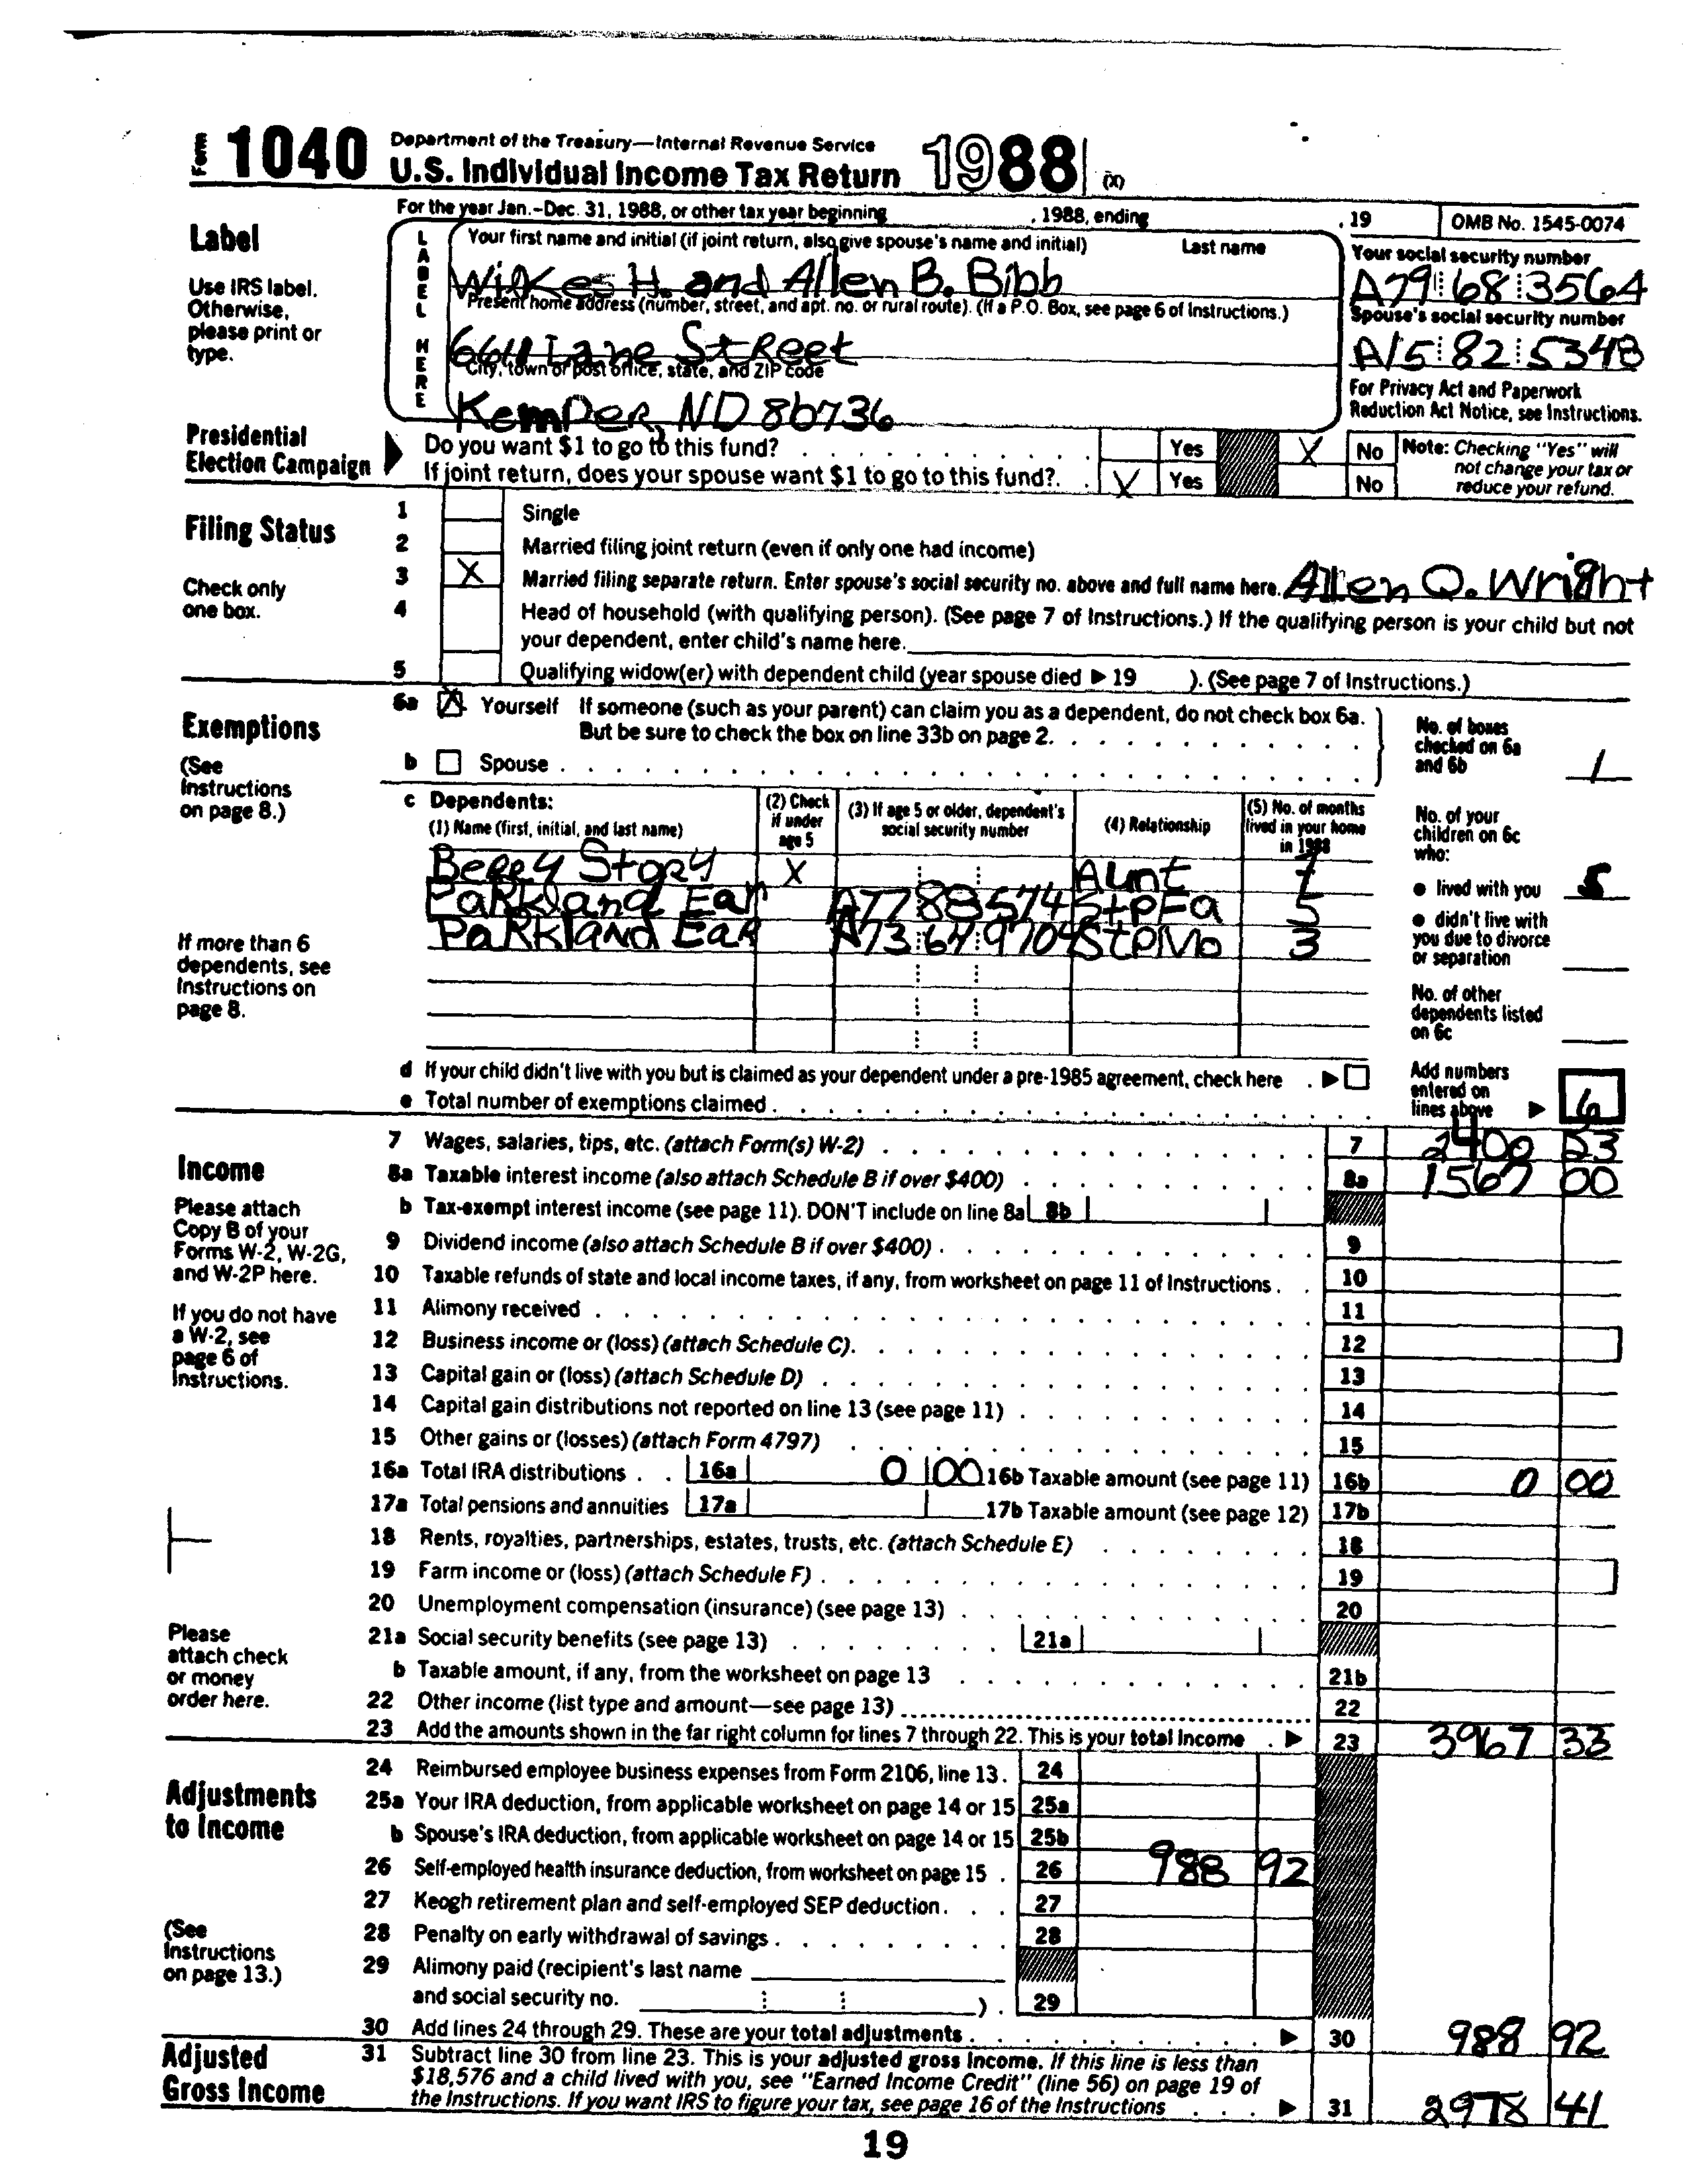 Form 1040 Department of the Treasury—Internal Revenue Service
U.S. Individual Income Tax Return 1988 (X)
For the year Jan.-Dec. 31, 1988, or other tax year beginning , 1988, ending , 19 OMB No. 1545-0074
Label
Use IRS label.
Otherwise,
please print or
type.
LABEL HERE
Your first name and initial (if joint return, also give spouse's name and initial) Last name
Wilkes H. and Allen B. Bibb
Your social security number
A79 68 3564
Present home address (number, street, and apt. no. or rural route). (If a P.O. Box, see page 6 of Instructions.)
Lane Street
Spouse's social security number
A15 82 5348
City, town or post office, state, and ZIP code
Kemper, ND 86736
For Privacy Act and Paperwork
Reduction Act Notice, see Instructions.
Presidential
Election Campaign
Do you want $1 to go to this fund? Yes X No
If joint return, does your spouse want $1 to go to this fund? X Yes No
Note: Checking "Yes" will
not change your tax or
reduce your refund.
Filing Status
Check only
one box.
1 Single
2 Married filing joint return (even if only one had income)
3 X Married filing separate return. Enter spouse's social security no. above and full name here. Allen Q. Wright
4 Head of household (with qualifying person). (See page 7 of Instructions.) If the qualifying person is your child but not
your dependent, enter child's name here.
5 Qualifying widow(er) with dependent child (year spouse died ▶ 19 ). (See page 7 of Instructions.)
Exemptions
(See
Instructions
on page 8.)
6a X Yourself If someone (such as your parent) can claim you as a dependent, do not check box 6a.
But be sure to check the box on line 33b on page 2.
b Spouse
No. of boxes
checked on 6a
and 6b 1
c Dependents:
(1) Name (first, initial, and last name)
(2) Check
if under
age 5
(3) If age 5 or older, dependent's
social security number
(4) Relationship
(5) No. of months
lived in your home
in 1988
Story X Aunt
Parkland Ear A77 88 574 StpFa 5
Parkland Ear A73 67 9704 StpMo 3
If more than 6
dependents, see
Instructions on
page 8.
No. of your
children on 6c
who:
● lived with you 5
● didn't live with
you due to divorce
or separation
No. of other
dependents listed
on 6c
d If your child didn't live with you but is claimed as your dependent under a pre-1985 agreement, check here ▶
e Total number of exemptions claimed
Add numbers
entered on
lines above ▶ 6
Income
Please attach
Copy B of your
Forms W-2, W-2G,
and W-2P here.
If you do not have
a W-2, see
page 6 of
Instructions.
7 Wages, salaries, tips, etc. (attach Form(s) W-2) 7 2400 23
8a Taxable interest income (also attach Schedule B if over $400) 8a 1567 00
b Tax-exempt interest income (see page 11). DON'T include on line 8a 8b
9 Dividend income (also attach Schedule B if over $400) 9
10 Taxable refunds of state and local income taxes, if any, from worksheet on page 11 of Instructions 10
11 Alimony received 11
12 Business income or (loss) (attach Schedule C) 12
13 Capital gain or (loss) (attach Schedule D) 13
14 Capital gain distributions not reported on line 13 (see page 11) 14
15 Other gains or (losses) (attach Form 4797) 15
16a Total IRA distributions 16a 0 00 16b Taxable amount (see page 11) 16b 0 00
17a Total pensions and annuities 17a 17b Taxable amount (see page 12) 17b
18 Rents, royalties, partnerships, estates, trusts, etc. (attach Schedule E) 18
19 Farm income or (loss) (attach Schedule F) 19
20 Unemployment compensation (insurance) (see page 13) 20
21a Social security benefits (see page 13) 21a
b Taxable amount, if any, from the worksheet on page 13 21b
22 Other income (list type and amount—see page 13) 22
23 Add the amounts shown in the far right column for lines 7 through 22. This is your total income ▶ 23 3967 33
Please
attach check
or money
order here.
Adjustments
to Income
(See
Instructions
on page 13.)
24 Reimbursed employee business expenses from Form 2106, line 13. 24
25a Your IRA deduction, from applicable worksheet on page 14 or 15 25a
b Spouse's IRA deduction, from applicable worksheet on page 14 or 15 25b
26 Self-employed health insurance deduction, from worksheet on page 15 26 988 92
27 Keogh retirement plan and self-employed SEP deduction 27
28 Penalty on early withdrawal of savings 28
29 Alimony paid (recipient's last name
and social security no. ) 29
30 Add lines 24 through 29. These are your total adjustments ▶ 30 988 92
Adjusted
Gross Income
31 Subtract line 30 from line 23. This is your adjusted gross income. If this line is less than
$18,576 and a child lived with you, see "Earned Income Credit" (line 56) on page 19 of
the Instructions. If you want IRS to figure your tax, see page 16 of the Instructions ▶ 31 2978 41
19